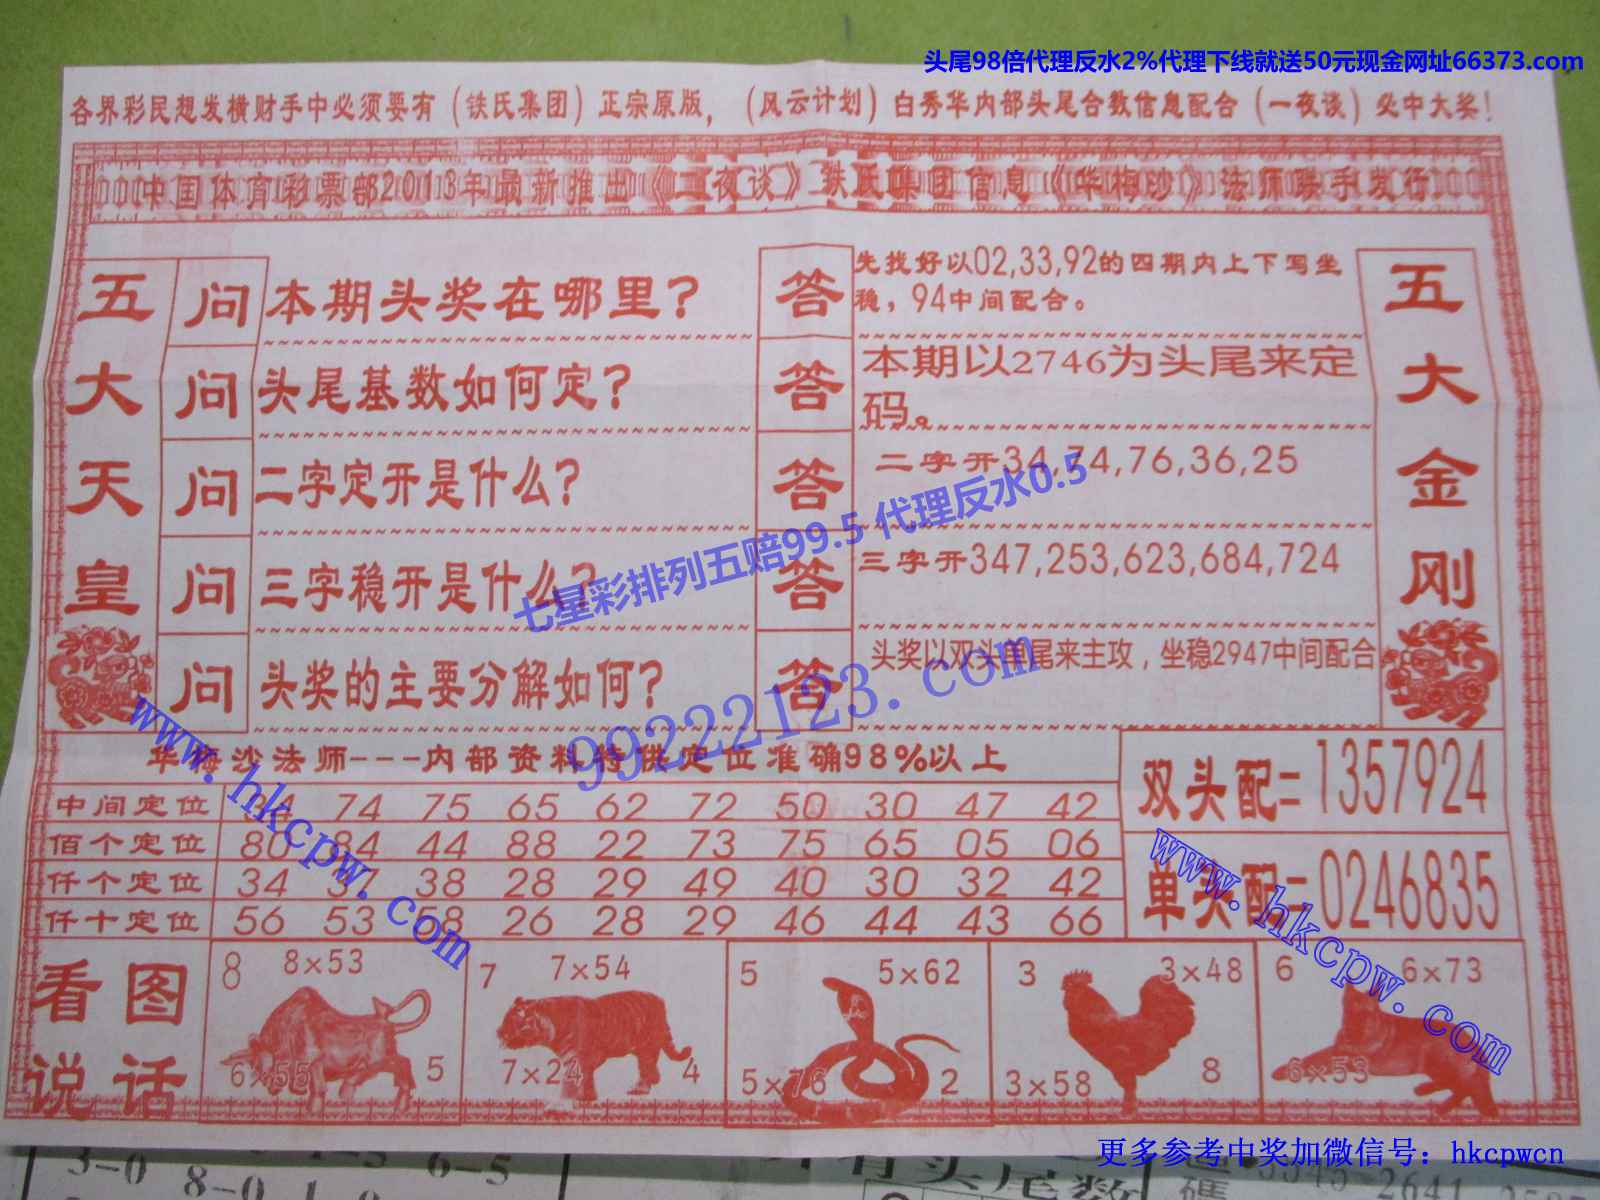 头尾98倍代理反水2%代理下线就送50元现金网址66373.com
各界彩民想发横财手中必须要有（铁氏集团）正宗原版，（风云计划）白秀华内部头尾合数信息配合（一夜谈）必中大奖！
中国体育彩票部2013年最新推出《一夜谈》铁氏集团信息《华梅沙》法师联手发行
五大天皇
问 本期头奖在哪里？
答 先找好以02,33,92的四期内上下写坐稳，94中间配合。
问 头尾基数如何定？
答 本期以2746为头尾来定码。
问 二字定开是什么？
答 二字开34,74,76,36,25
问 三字稳开是什么？
答 三字开347,253,623,684,724
问 头奖的主要分解如何？
答 头奖以双头单尾来主攻，坐稳2947中间配合
五大金刚
七星彩排列五赔99.5 代理反水0.5
99222123.com
www.hkcpw.com
华梅沙法师---内部资料特供定位准确98%以上
中间定位 74 75 65 62 72 50 30 47 42
佰个定位 80 84 44 88 22 73 75 65 05 06
仟个定位 34 37 38 28 29 49 40 30 32 42
仟十定位 56 53 58 26 28 29 46 44 43 66
双头配二 1357924
单头配二 0246835
www.hkcpw.com
看图说话
8 8×53
6×55 5
7 7×54
7×24 4
5 5×62
5×76 2
3 3×48
3×58 8
6 6×73
6×53
更多参考中奖加微信号：hkcpwcn
3-0 8-0 6-5
头尾数